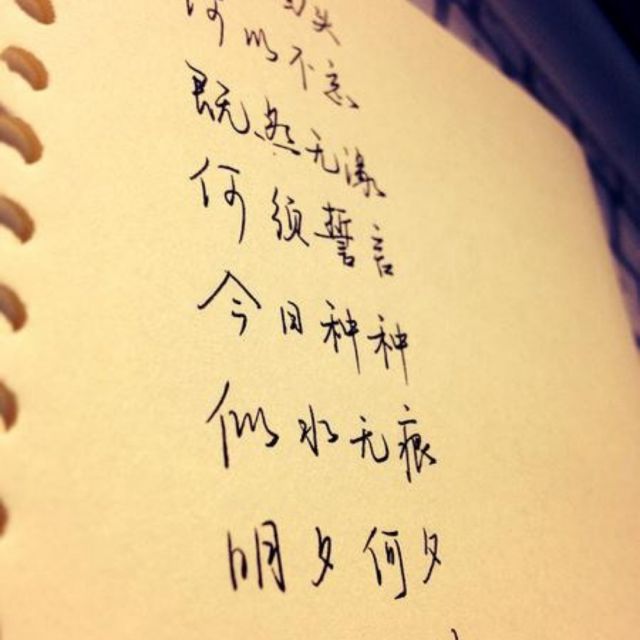 何必不忘
既然无缘
何须誓言
今日种种
似水无痕
明夕何夕